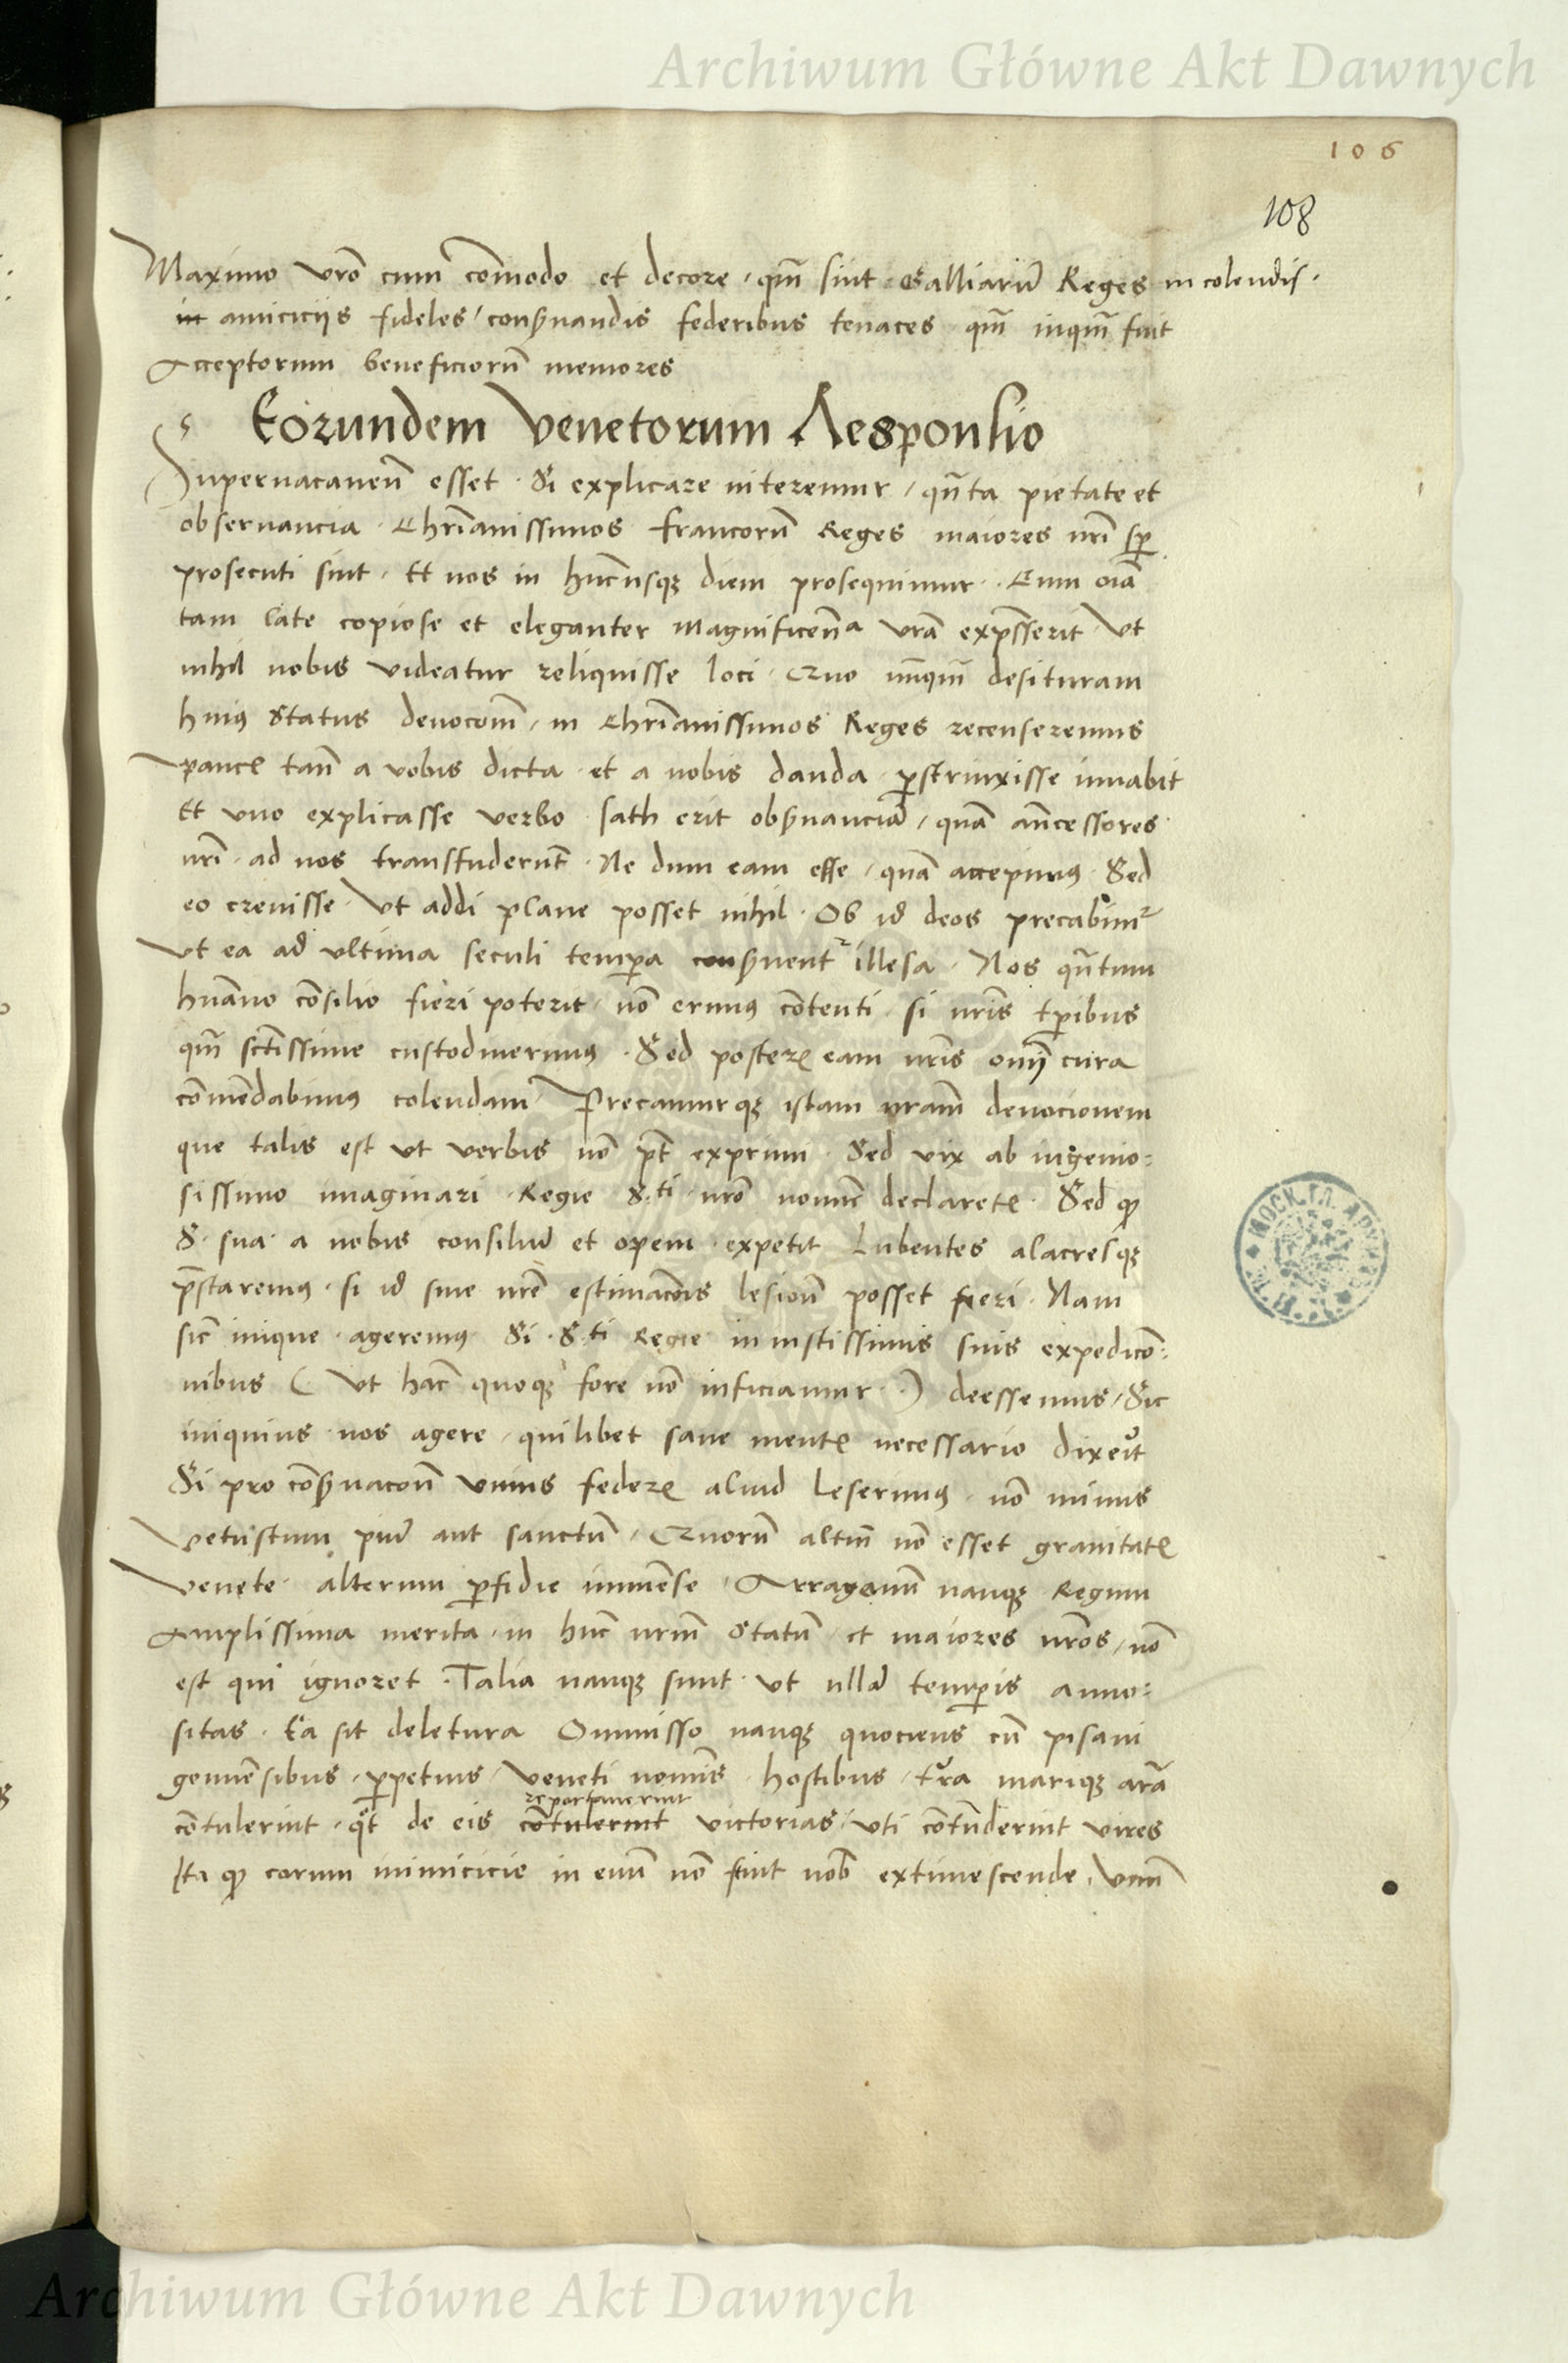 Archiwum Główne Akt Dawnych
106
108
Maximo vr̃o cum com̃odo et decore, qm̃ sint Galliarũ Reges in colendis.
in amiciciis fideles / consꝑuandis federibus tenaces qm̃ inqm̃ sint
Acceptorum beneficiorũ memores
s Eorundem Venetorum Responsio
Supervacaneũ esset. Si explicare niteremur, qñta pietate et
observancia Chrĩanissimos francorũ Reges maiores nr̃i sꝑ
prosecuti sint. Et nos in hũcusqꝫ diem prosequimur. Cum oĩa
tam late copiose et eleganter Magnificen̄a vr̃a exp̃sserit Vt
nihil nobis videatur reliquisse loci. Quo nũqm̃ desituram
huius Status devocoñi, in Chrĩanissimos Reges recenseremus
pauca tam̃ a vobis dicta et a nobis danda ꝑstrinxisse iuvabit
Et vno explicasse verbo sath erit obsꝑvanciã, quã añcessores
nr̃i ad nos transfuderũt. Ne dum eam esse, quã accepimus Sed
eo crevisse Vt addi plane posset nihil. Ob id deos precabimr
Vt ea ad vltima seculi tempa consꝑventr illesa. Nos qñtum
huãno cõsilio fieri poterit, nõ erimus cõtenti si nr̃is tꝑibus
qm̃ sctĩssime custodiverimus. Sed posteris eam nr̃is omi cura
cõmẽdabimus colendam Precamurqꝫ istam nram̃ devocionem
que talis est vt verbis nõ pt̃ exprimi. Sed vix ab ingenio=
sissimo imaginari. Regie S.ti nrõ nomĩe declaretis. Sed qꝫ
S. sua a nobis consiliũ et opem expetit Lubentes alacresqꝫ
p̃staremus. si id sine nr̃e estimacõnis lesioñ posset fieri. Nam
sic inique ageremus Si S.ti Regie in iustissimis suis expedicõ=
nibus ( Vt hac̃ quoqꝫ fore nõ inficiamur.) deessemus, Sic
iniquius nos agere, quilibet sane mentis necessario dixerit
Si pro cõsꝑvacoñ vnius federis aliud leserimus, nõ minus
Vetustum piũ aut sanctũ, Quorũ altm̃ nõ esset gravitatis
Venete, alterum ꝑfidie immense. Arragonũ nanqꝫ Regum
Amplissima merita in hũc nrm̃ Statũ et maiores nrõs, nõ
est qui ignoret. Talia nanqꝫ sunt vt nullã temꝑis anno=
sitas. Ea sit deletura Ommisso nanqꝫ quociens cũ pisani
genuensibus, ꝑpetuis Veneti nomĩs hostibus, tr̃ra marique arã
cõtulerint, qt̃ de eis cõtulerint reportaverint victorias, vti cõtũderint vires
Ita qꝫ eorum inimicicie in evũ nõ sint nob̃ extimescende, Vnũ
Archiwum Główne Akt Dawnych